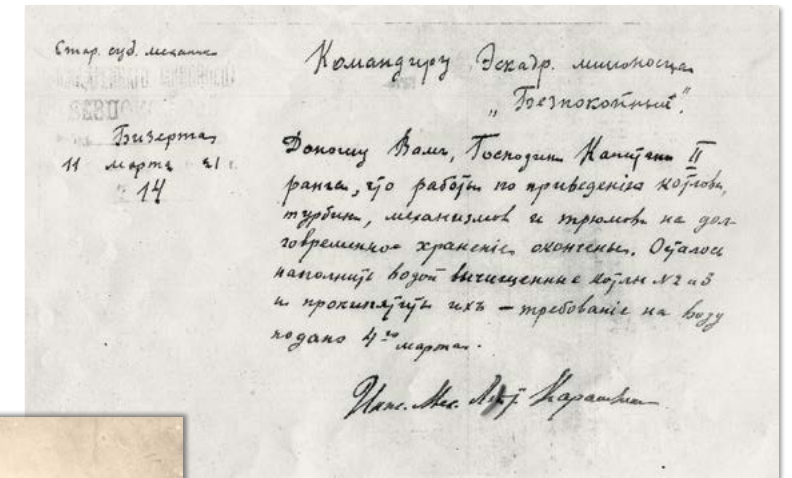 Стар. суд. механик
Бизерта
11 марта 21 г.
14
Командиру Эскадр. миноносца
„Безпокойный".
Доношу Вамъ, Господинъ Капитанъ II
ранга, что работы по приведенію котловъ,
турбинъ, механизмовъ и трюмовъ на дол-
говременное храненіе окончены. Осталось
наполнить водой вычищенные котлы №2 и 3
и прокипятить ихъ – требованіе на воду
подано 4го марта.
Инж. Мех. Лейт.